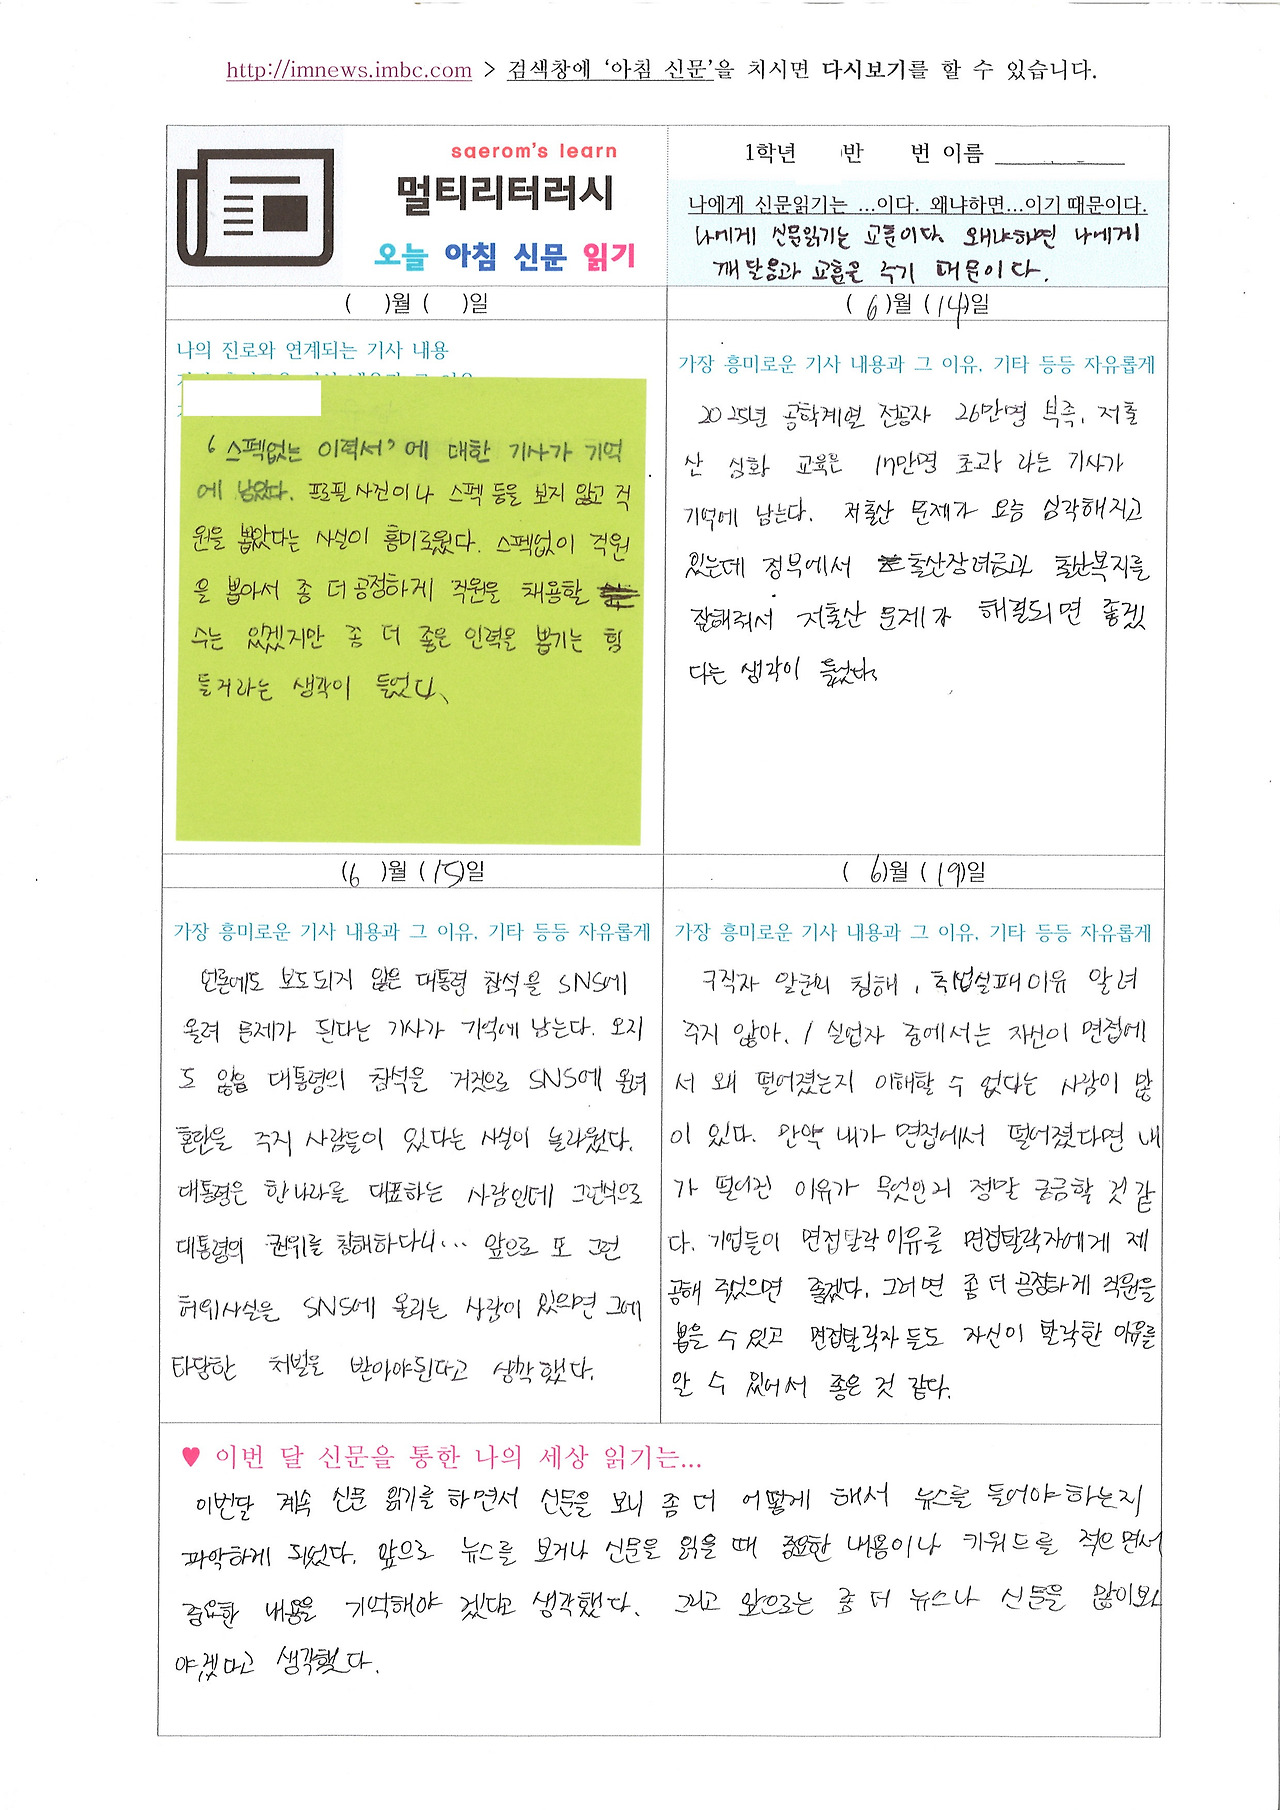 http://imnews.imbc.com > 검색창에 ‘아침 신문’을 치시면 다시보기를 할 수 있습니다.
saerom's learn
멀티리터러시
오늘 아침 신문 읽기
1학년 반 번 이름
나에게 신문읽기는 …이다. 왜냐하면…이기 때문이다.
나에게 신문읽기는 교훈이다. 왜냐하면 나에게
깨달음과 교훈을 주기 때문이다.
( )월 ( )일
나의 진로와 연계되는 기사 내용
‘스펙없는 이력서’에 대한 기사가 기억
에 남았다. 프로필 사진이나 스펙 등을 보지 않고 직
원을 뽑았다는 사실이 흥미로웠다. 스펙없이 직원
을 뽑아서 좀 더 공정하게 직원을 채용할
수는 있겠지만 좀 더 좋은 인력을 뽑기는 힘
들거라는 생각이 들었다.
(6)월 (14)일
가장 흥미로운 기사 내용과 그 이유. 기타 등등 자유롭게
2025년 공학계열 전공자 26만명 부족, 저출
산 심화 교육은 17만명 초과 라는 기사가
기억에 남는다. 저출산 문제가 요즘 심각해지고
있는데 정부에서 출산장려금과 출산복지를
잘해줘서 저출산 문제가 해결되면 좋겠
다는 생각이 들었다.
(6 )월 (15)일
가장 흥미로운 기사 내용과 그 이유. 기타 등등 자유롭게
언론에도 보도되지 않은 대통령 참석을 SNS에
올려 문제가 된다는 기사가 기억에 남는다. 오지
도 않을 대통령의 참석을 거짓으로 SNS에 올려
혼란을 주지 사람들이 있다는 사실이 놀라웠다.
대통령은 한나라를 대표하는 사람인데 그런식으로
대통령의 권위를 침해하다니... 앞으로 또 그런
허위사실을 SNS에 올리는 사람이 있으면 그에
타당한 처벌을 받아야된다고 생각했다.
( 6)월 (19)일
가장 흥미로운 기사 내용과 그 이유. 기타 등등 자유롭게
구직자 알권리 침해, 취업실패이유 알려
주지 않아. / 실업자 중에서는 자신이 면접에
서 왜 떨어졌는지 이해할 수 없다는 사람이 많
이 있다. 만약 내가 면접에서 떨어졌다면 내
가 떨어진 이유가 무엇인지 정말 궁금할 것 같
다. 기업들이 면접탈락 이유를 면접탈락자에게 제
공해 줬었으면 좋겠다. 그러면 좀 더 공정하게 직원을
뽑을 수 있고 면접탈락자들도 자신이 탈락한 이유를
알 수 있어서 좋은 것 같다.
♥ 이번 달 신문을 통한 나의 세상 읽기는...
이번달 계속 신문 읽기를 하면서 신문을 보니 좀 더 어떻게 해서 뉴스를 들어야 하는지
파악하게 되었다. 앞으로 뉴스를 보거나 신문을 읽을 때 중요한 내용이나 키워드를 적으면서
중요한 내용을 기억해야 겠다고 생각했다. 그리고 앞으로는 좀 더 뉴스나 신문을 많이봐
야겠다고 생각했다.